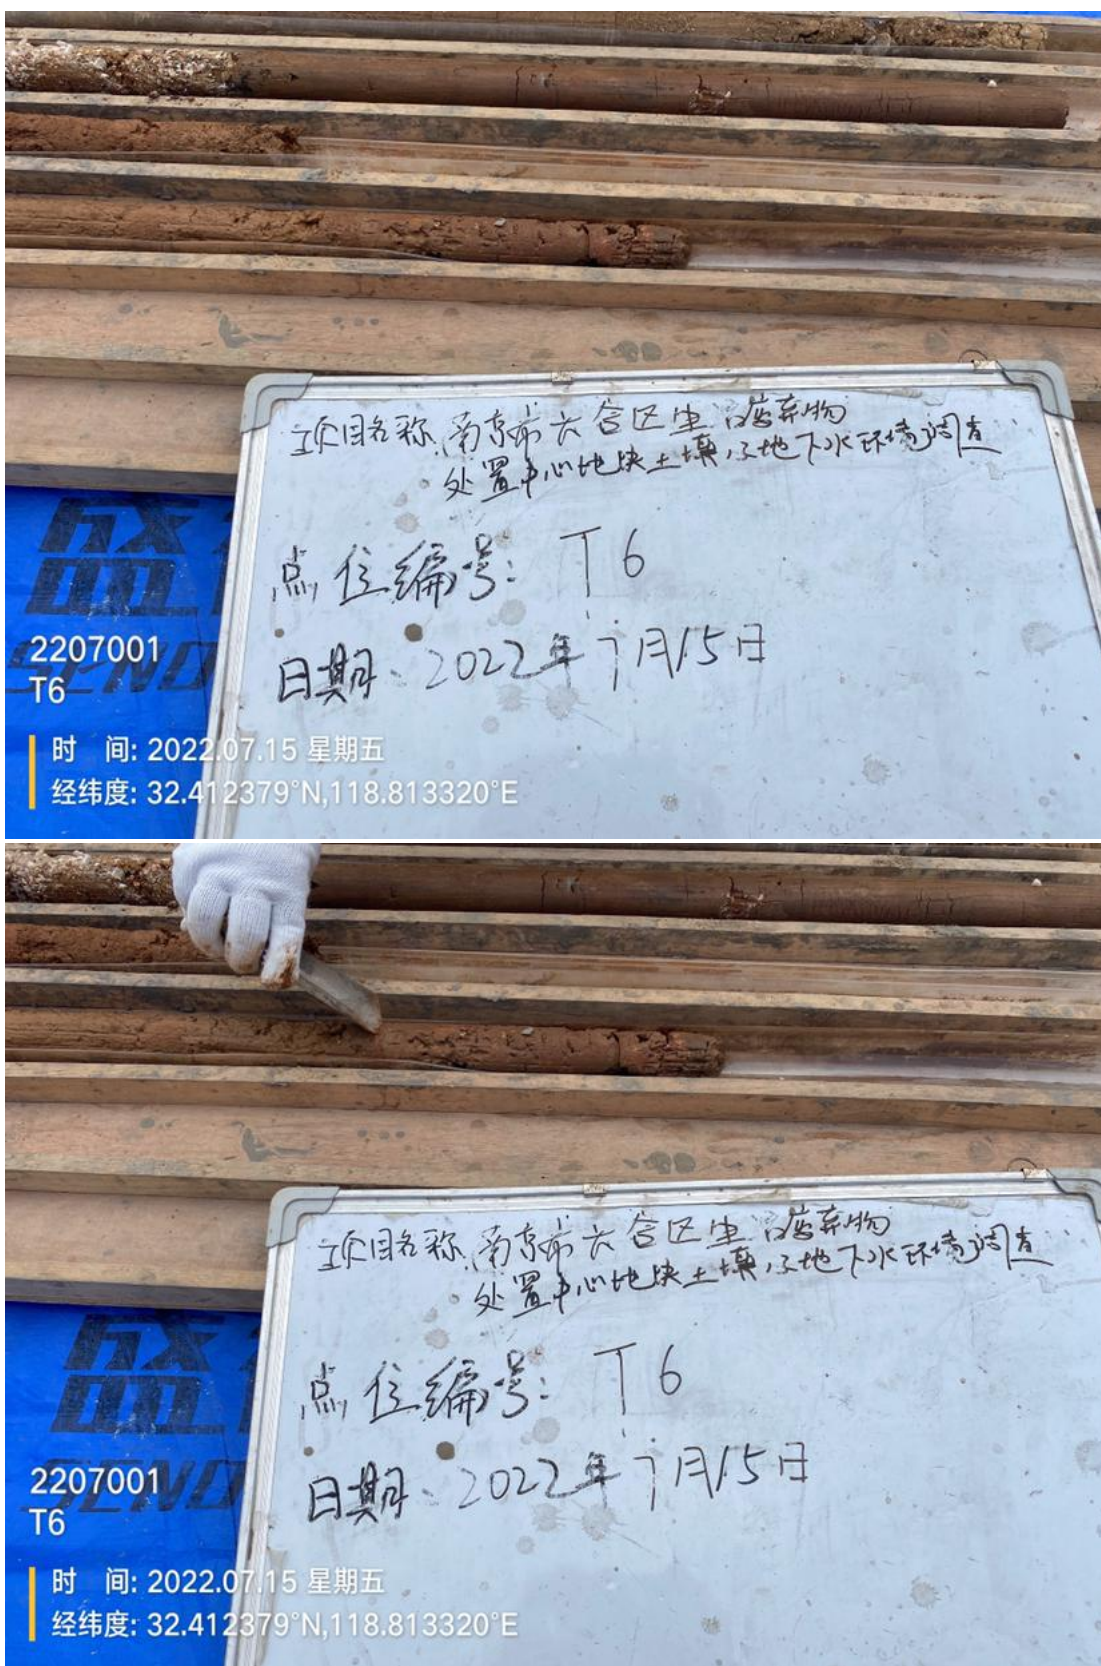 项目名称:南京市六合区生活废弃物
处置中心地块土壤及地下水环境调查
点位编号: T6
日期: 2022年7月15日
盛
2207001
T6
时 间: 2022.07.15 星期五
经纬度: 32.412379°N,118.813320°E
项目名称:南京市六合区生活废弃物
处置中心地块土壤及地下水环境调查
点位编号: T6
日期: 2022年7月15日
盛
2207001
T6
时 间: 2022.07.15 星期五
经纬度: 32.412379°N,118.813320°E